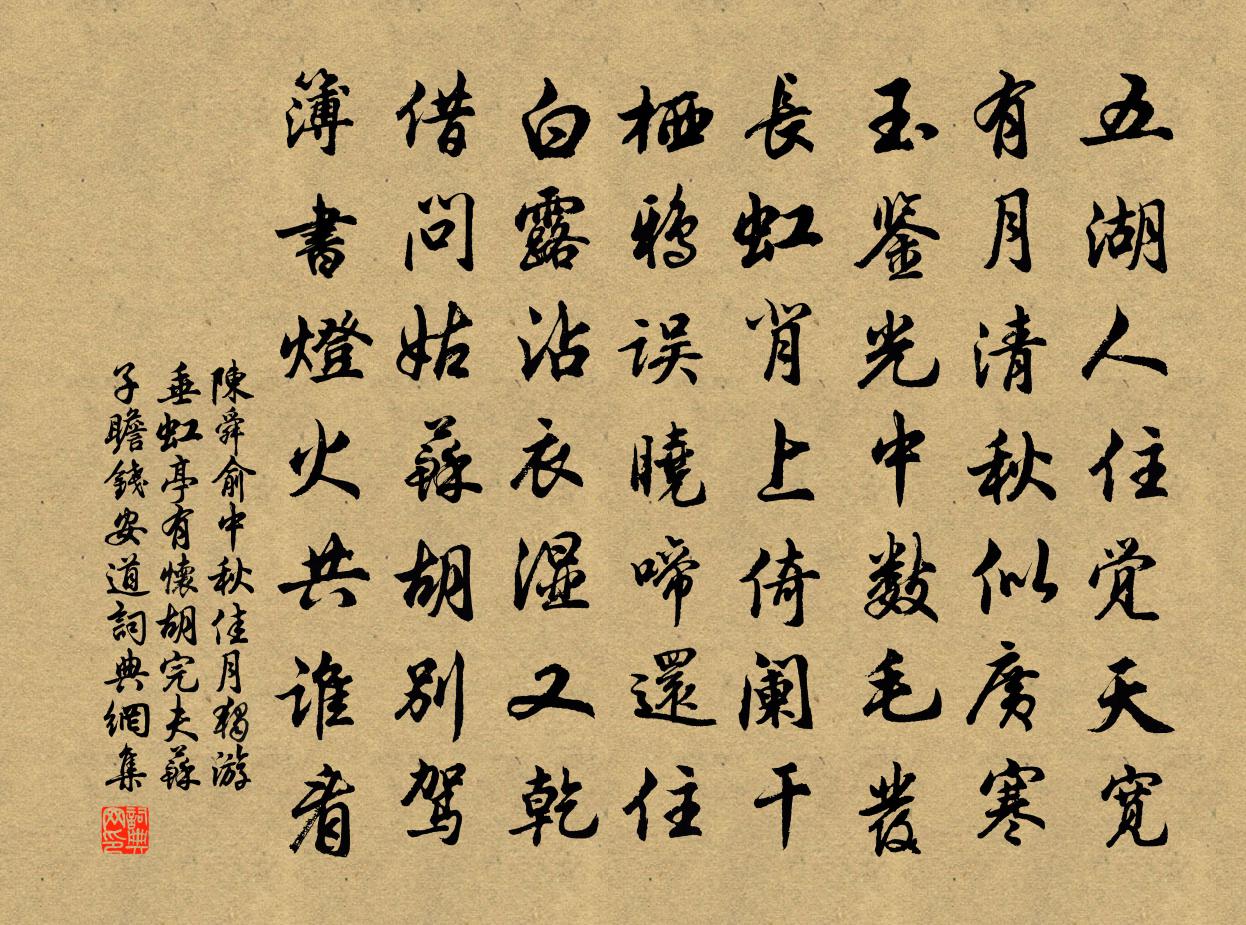 五湖人住觉天宽
有月清秋似廣寒
玉鉴光中数毛发
長虹背上倚阑干
栖鸦误曉啼還住
白露沾衣湿又乾
借问姑蘇胡别驾
簿書燈火共谁看
陳舜俞中秋佳月獨游
垂虹亭有懷胡完夫蘇
子瞻錢安道詞典網集
詞典
网印